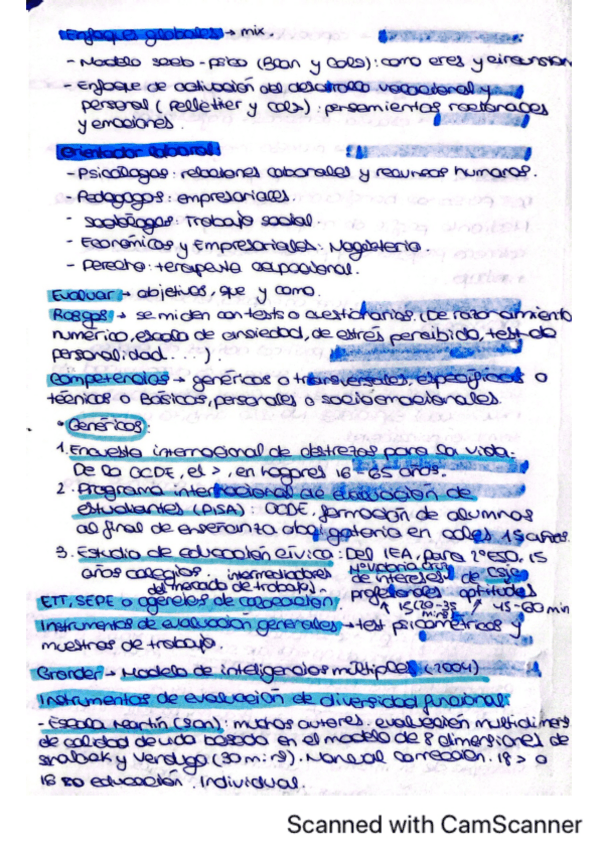 Enfoques globales → mix.
- Modelo socio-psico (Bean y Cols): como eres y circunstan
- Enfoque de activación del desarrollo vocacional y
personal (Pelletier y cols): pensamientos racionales
y emociones.
Orientador laboral
- Psicólogos: relaciones laborales y recursos humanos.
- Pedagogos: empresariales.
- Sociólogos: Trabajo social.
- Económicos y Empresariales: Magisterio.
- Derecho: terapeuta ocupacional.
Evaluar → objetivos, que y como.
Rasgos → se miden con tests o cuestionarios. (De razonamiento
numérico, escala de ansiedad, de estrés percibido, test de
personalidad...).
Competencias → genéricas o transversales, específicas o
técnicas - Básicas, personales o socioemocionales.
• Genéricos:
1. Encuesta internacional de destrezas para la vida:
De la OCDE, el >, en hogares 16-65 años.
2. Programa internacional de evaluación de
estudiantes (PISA): OCDE, formación de alumnos
al final de enseñanza obligatoria en coles 15 años.
3. Estudio de educación cívica: Del IEA, para 2º ESO, 15
años colegios. intermediadores
del mercado de trabajo.
de intereses de
profesionales aptitudes
ETT, SEPE o agencias de colocación.
↑ 15 (20-35 mins) ↑ 45-60 min
Instrumentos de evaluación generales → test psicométricos y
muestras de trabajo.
Grander → Modelo de inteligencias múltiples (2004)
Instrumentos de evaluación de diversidad funcional:
- Escala Martín (San): muchos autores. evaluación multidimens
de calidad de vida basado en el modelo de 8 dimensiones de
y Verdugo (30 mins). Manual corrección. 18 > o
18 educación. Individual.
Scanned with CamScanner